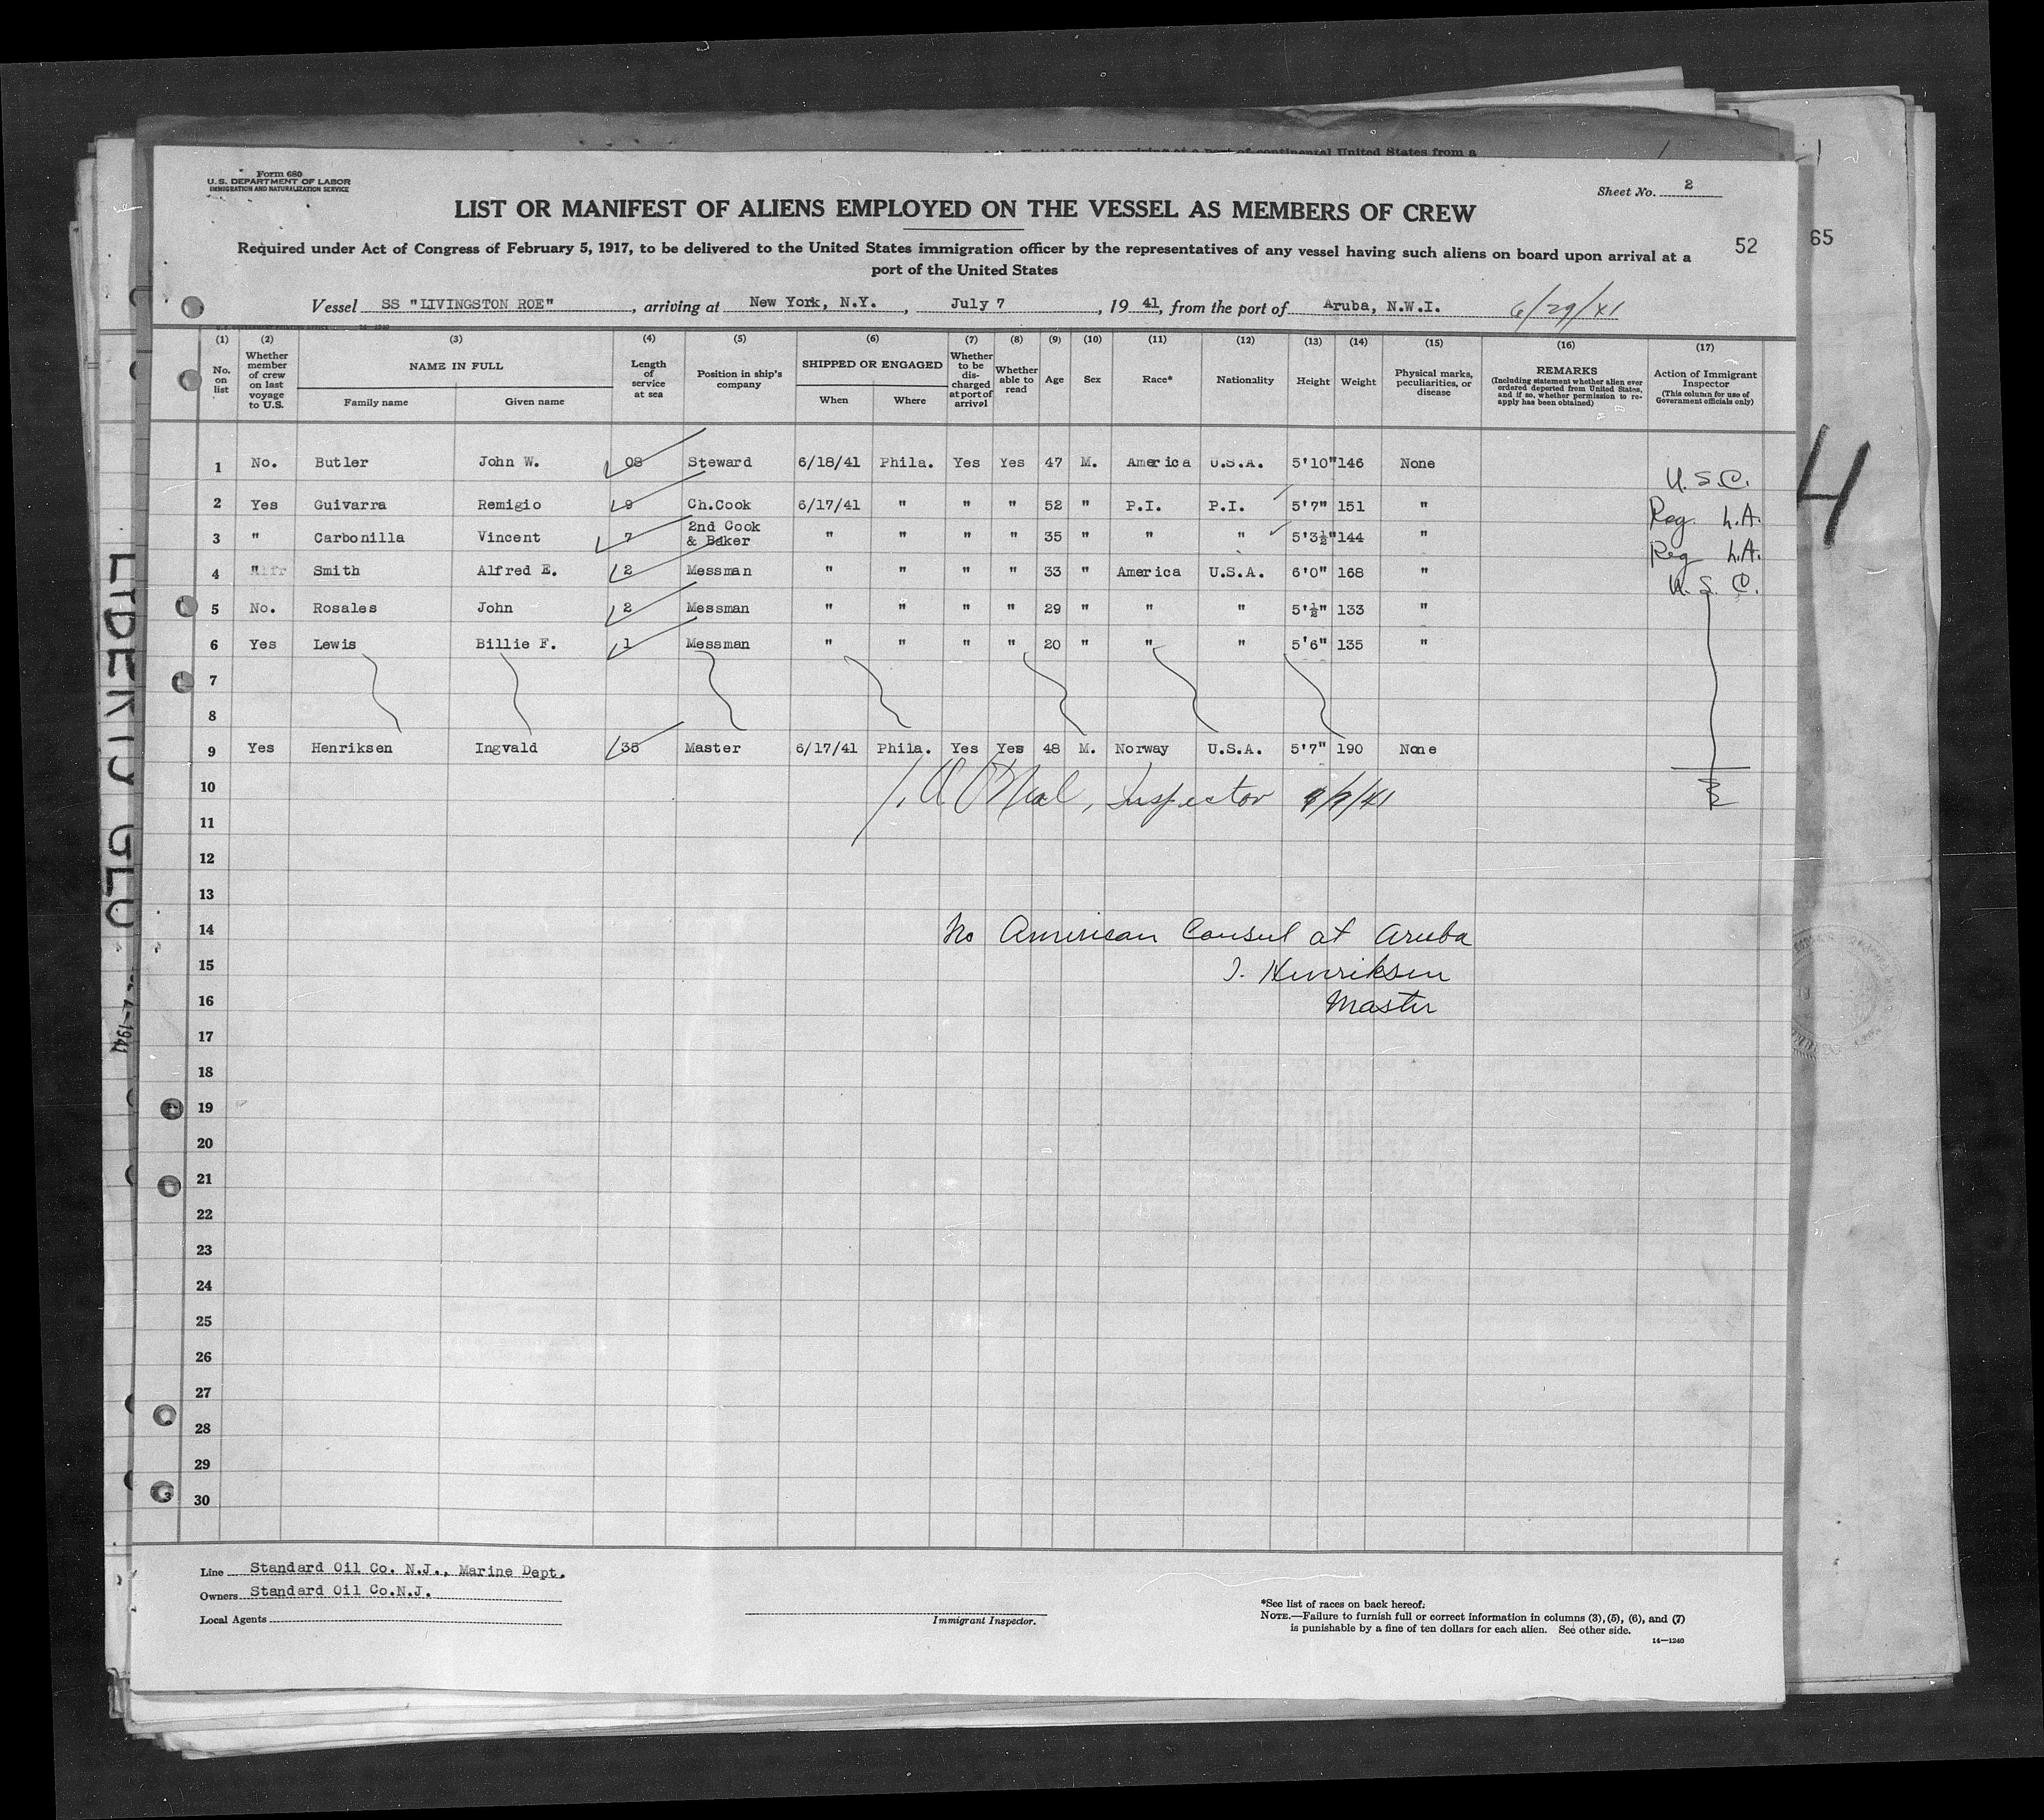 Form 680
U. S. DEPARTMENT OF LABOR
IMMIGRATION AND NATURALIZATION SERVICE
Sheet No. 2
LIST OR MANIFEST OF ALIENS EMPLOYED ON THE VESSEL AS MEMBERS OF CREW
Required under Act of Congress of February 5, 1917, to be delivered to the United States immigration officer by the representatives of any vessel having such aliens on board upon arrival at a
port of the United States
52
65
Vessel SS "LIVINGSTON ROE", arriving at New York, N.Y., July 7, 1941, from the port of Aruba, N.W.I. 6/29/41
(1) (2) (3) (4) (5) (6) (7) (8) (9) (10) (11) (12) (13) (14) (15) (16) (17)
No. on list
Whether member of crew on last voyage to U.S.
NAME IN FULL
Family name Given name
Length of service at sea
Position in ship's company
SHIPPED OR ENGAGED
When Where
Whether to be discharged at port of arrival
Whether able to read
Age
Sex
Race*
Nationality
Height
Weight
Physical marks, peculiarities, or disease
REMARKS
(Including statement whether alien ever ordered deported from United States, and if so, whether permission to reapply has been obtained)
Action of Immigrant Inspector
(This column for use of Government officials only)
1 No. Butler John W. 08 Steward 6/18/41 Phila. Yes Yes 47 M. America U.S.A. 5'10" 146 None U.S.C.
2 Yes Guivarra Remigio 9 Ch.Cook 6/17/41 " " " 52 " P.I. P.I. 5'7" 151 " Reg. L.A.
3 " Carbonilla Vincent 7 2nd Cook & Baker " " " " 35 " " " 5'3½" 144 " Reg L.A.
4 " Smith Alfred E. 2 Messman " " " " 33 " America U.S.A. 6'0" 168 " U.S.C.
5 No. Rosales John 2 Messman " " " " 29 " " " 5'½" 133 "
6 Yes Lewis Billie F. 1 Messman " " " " 20 " " " 5'6" 135 "
7
8
9 Yes Henriksen Ingvald 35 Master 6/17/41 Phila. Yes Yes 48 M. Norway U.S.A. 5'7" 190 None
10 Inspector
11
12
13
14 No American Consul at Aruba
15 I. Henriksen
16 Master
17
18
19
20
21
22
23
24
25
26
27
28
29
30
4
Line Standard Oil Co. N.J., Marine Dept.
Owners Standard Oil Co.N.J.
Local Agents
Immigrant Inspector.
*See list of races on back hereof.
NOTE.—Failure to furnish full or correct information in columns (3), (5), (6), and (7)
is punishable by a fine of ten dollars for each alien. See other side.
14—1240